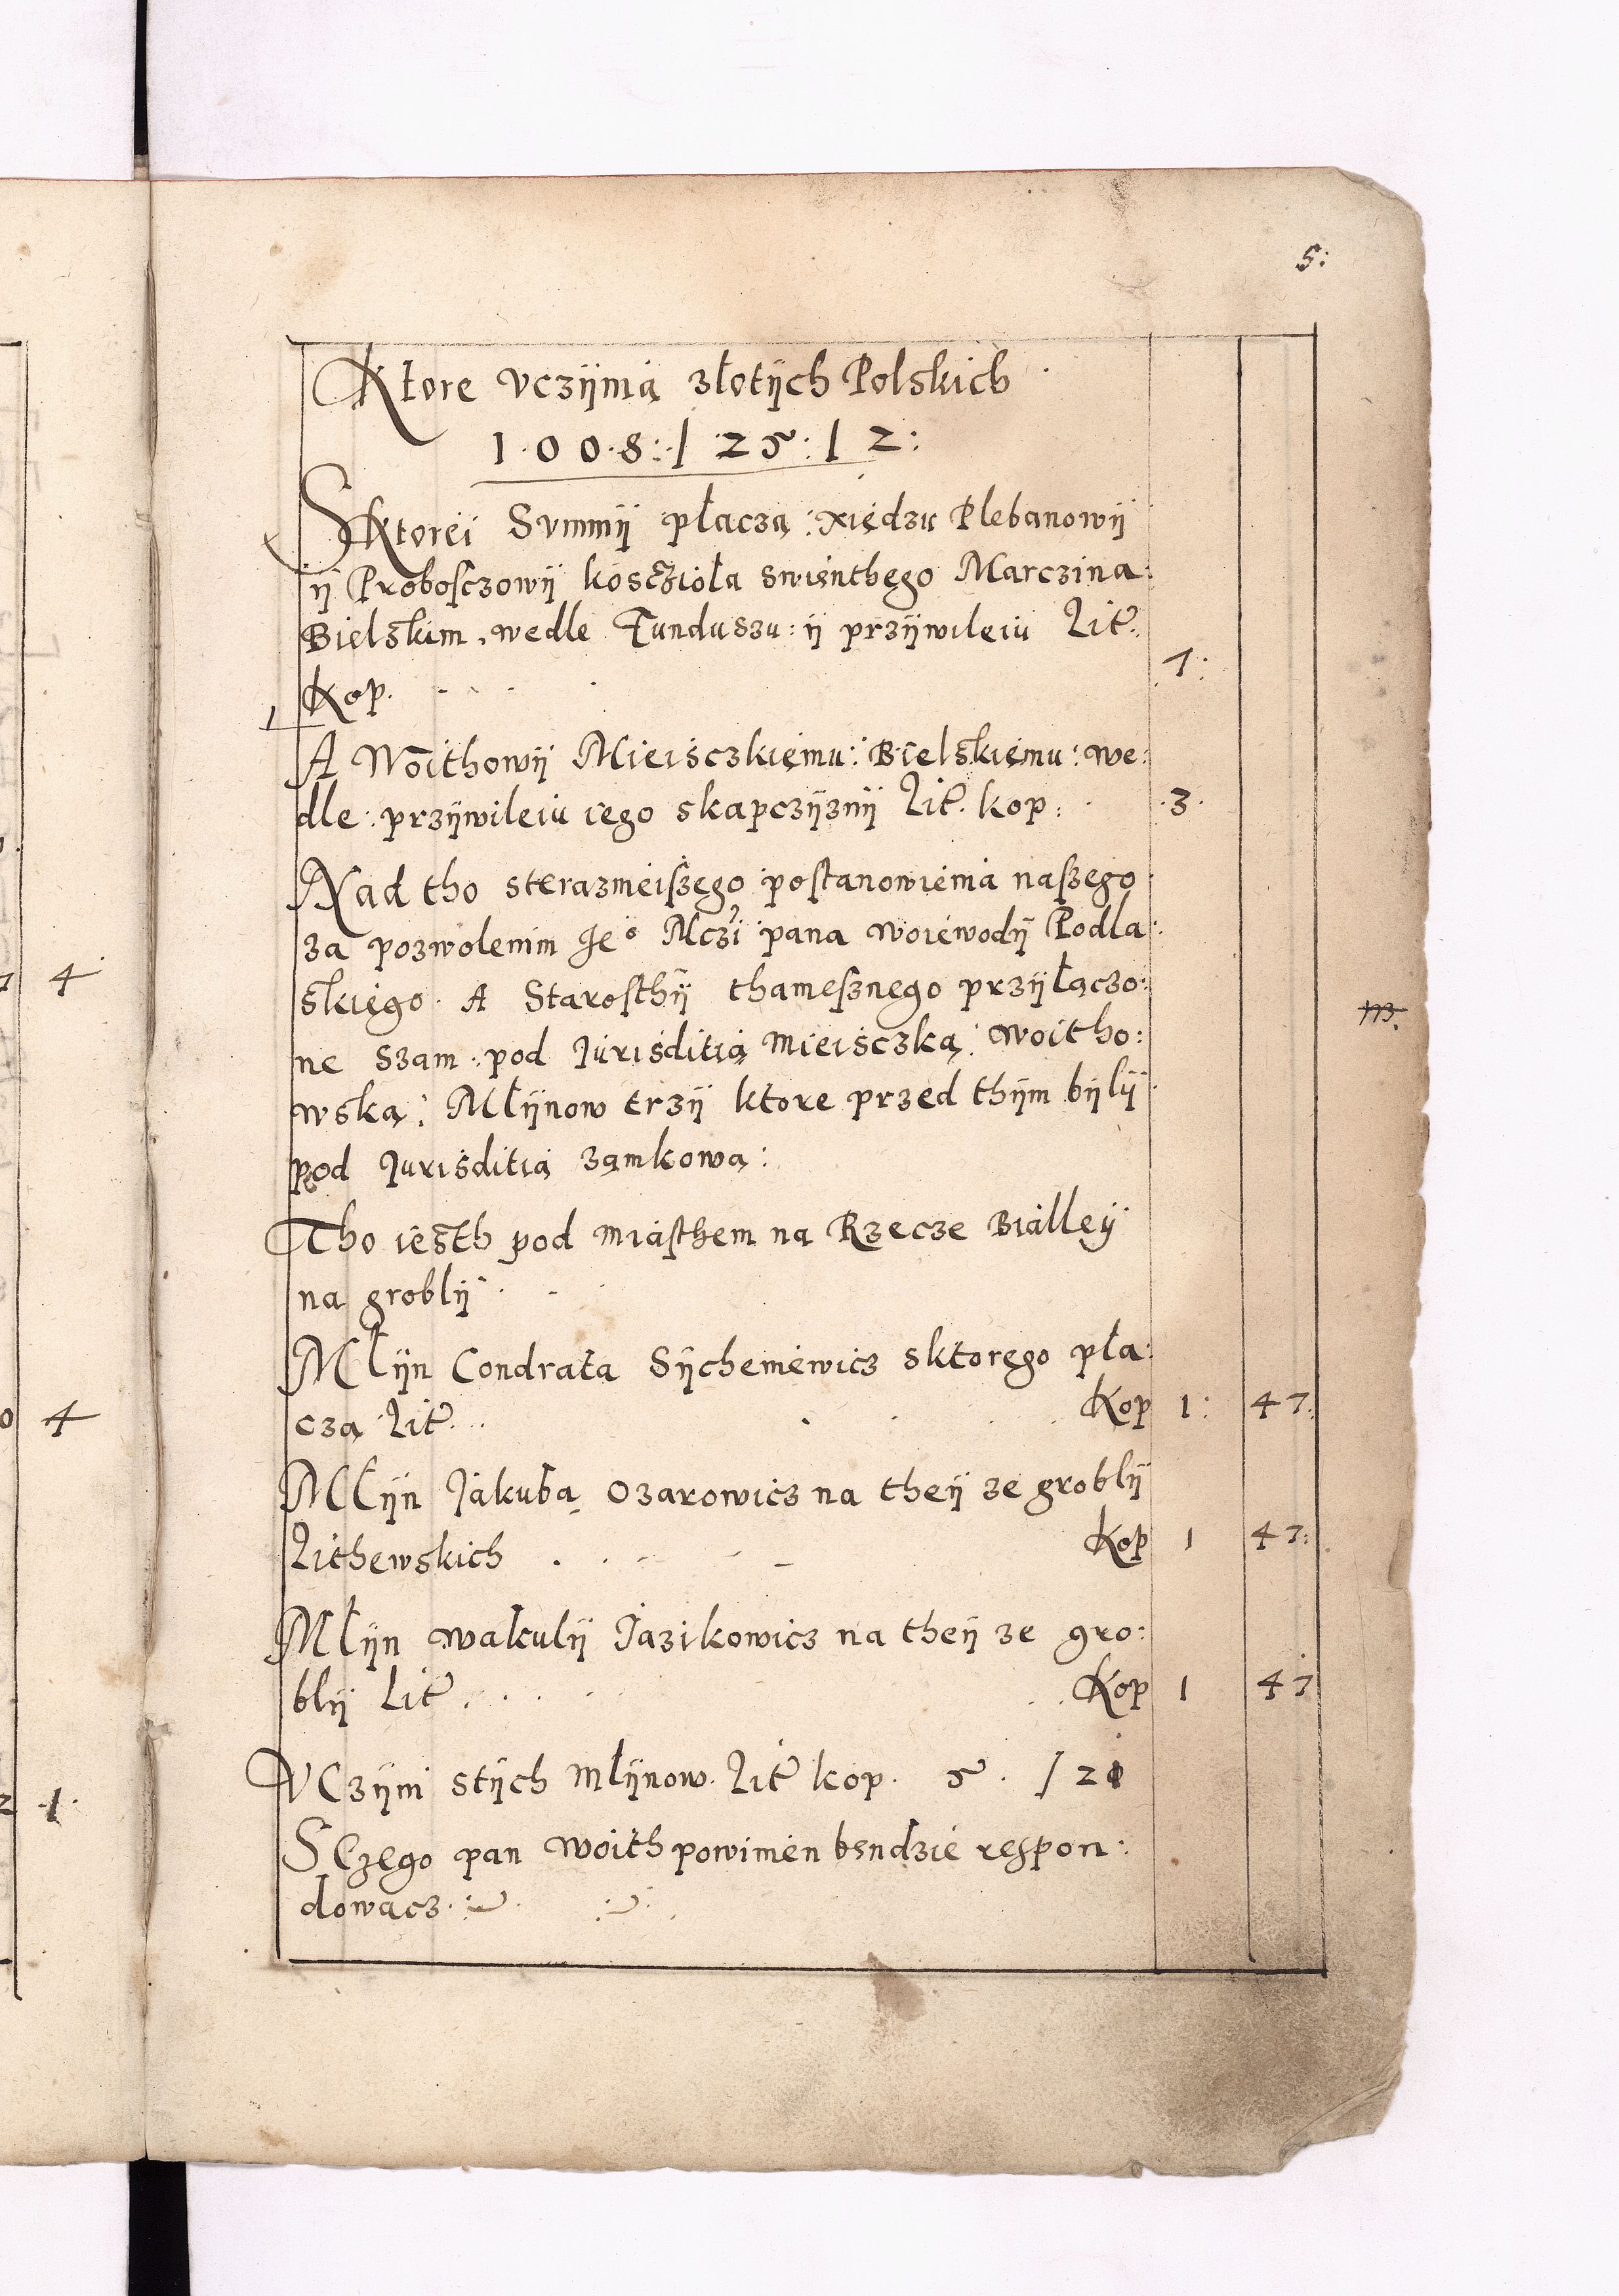 5:
Ktore vczÿnią złotÿch Polskich
1·0·0·8:/ 25:/ 2:
Sktorei Summÿ płaczą: xiędzu Plebanowÿ
ÿ Proboſczowÿ kosczioła swięnthego Marczina:
Bielskim. wedle Funduszu: ÿ przÿwileiu Lit:
Kop. 1:
A Woithowÿ Mieisczkiemu: Bielskiemu: we:
dle: przÿwileiu iego skapczÿznÿ Lit. kop: 3.
Nad tho sterazneiſzego poſtanowienia naſzego
za pozwolenim Je° Mczi pana woiewodÿ Podla:
skiego. A Staroſthÿ thameſznego przÿłączo:
ne szam. pod Jurisditią mieisczką: woitho:
wską: Młÿnow trzÿ ktore przed thÿm bÿlÿ
pod Jurisditią zamkową:
Tho iesth pod miaſthem na Rzecze Bialleÿ
na groblÿ
Młÿn Condrata Sÿcheniewicz sktorego pła:
czą Lit. Kop 1: 47:
Młÿn Jakuba Ozarowicz na theÿ ze groblÿ
Lithewskich Kop 1 47:
Młÿn wakulÿ Jazikowicz na theÿ ze gro:
blÿ Lit. Kop 1 47
VCzÿni stÿch młÿnow. Lit kop. 5. / 21
SCzego pan woith powinien bendzie respon:
dowacz.
4
4
1